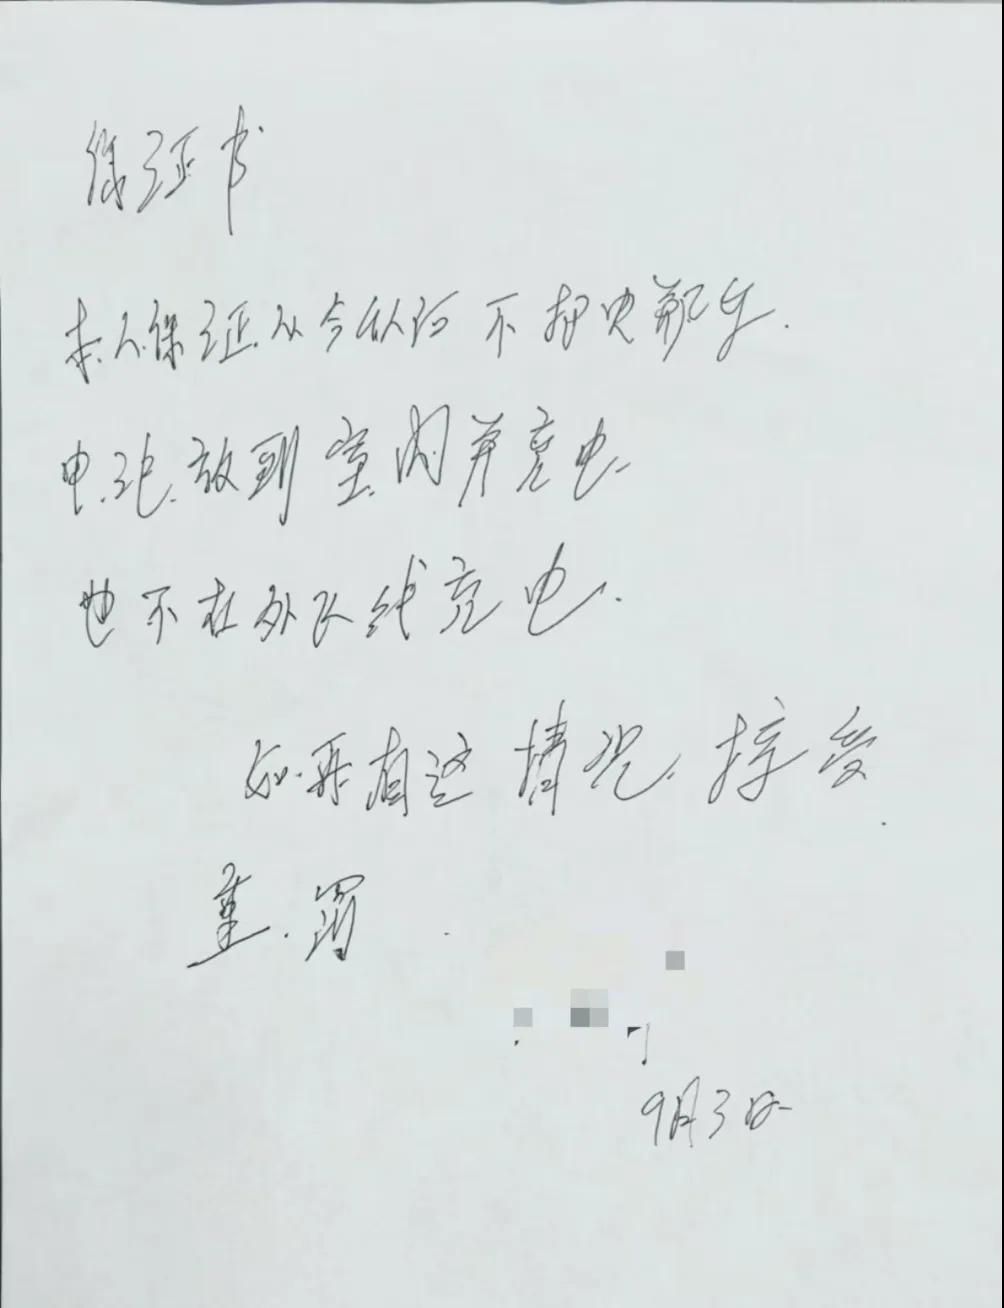 保证书
本人保证从今以后不把电瓶车.
电池放到室内并充电
也不在外飞线充电.
如再有这情况.接受
重罚.
9月3日